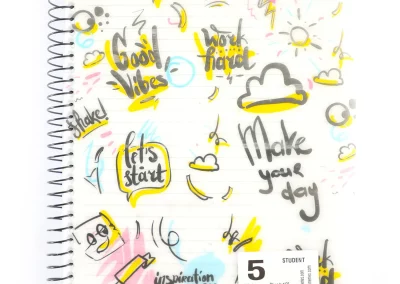 Good
Vibes
Work
hard
Shake!
let's
start
Make
your
day
inspiration
5
STUDENT